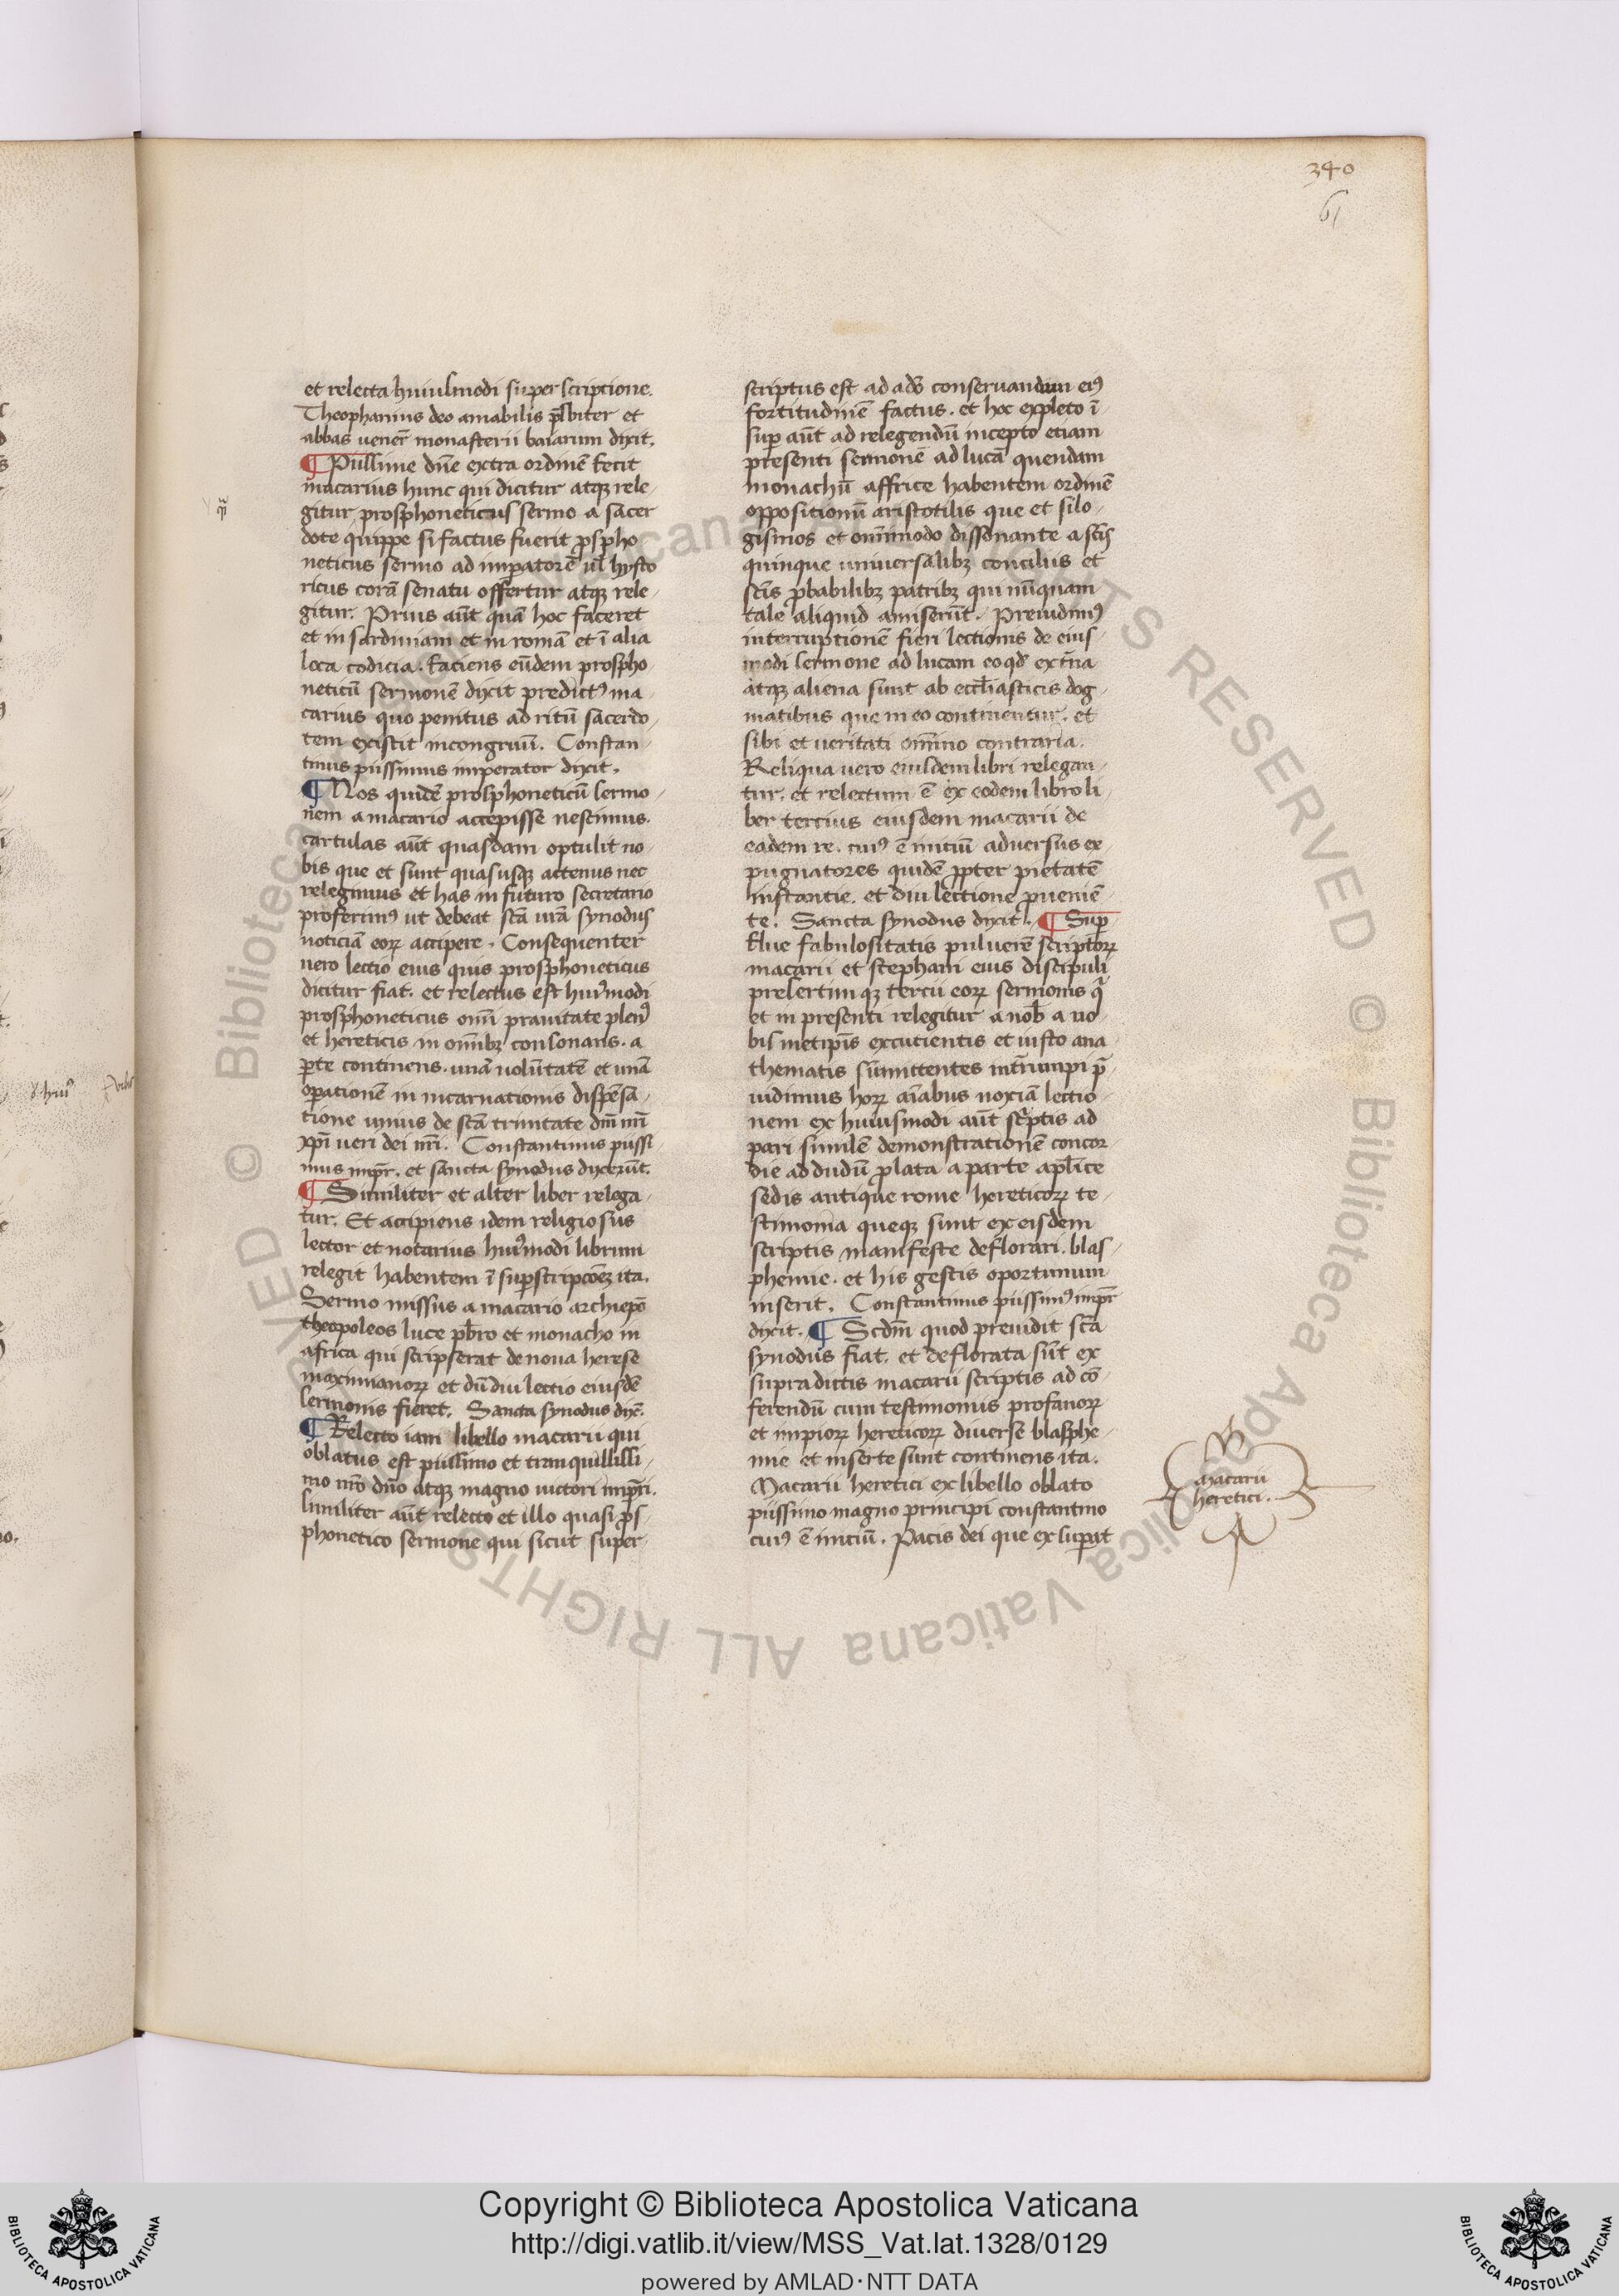 340
61
et relecta huiusmodi superscriptione.
Theophanius deo amabilis pr̄sbiter et
abbas uener̄ monasterii baiarum dixit.
¶ Piissime dn̄e extra ordinē fecit
macarius hunc qui dicitur atqꝫ rele-
gitur prosphoneticus sermo a sacer
dote quippe si factus fuerit ꝓspho
neticus sermo ad impatorē ul̄ hysto
ricus corā senatu offertur atqꝫ rele-
gitur. Prius aūt quā hoc faceret
et in sardiniam et in romā et ī alia
loca codicia. faciens eūdem prospho
neticū sermonē dixit predictꝰ ma-
carius quo penitus ad ritū sacerdo-
tem existit incongruū. Constan-
tinus piissimus imperator dixit.
¶ Nos quidē prosphoneticū sermo-
nem a macario accepisse nescimus.
cartulas aūt quasdam optulit no-
bis que et sunt quas usqꝫ actenus nec
relegimus et has in futuro secretario
proferimꝰ ut debeat scā urā synodus
noticiā eoꝝ accipere. Consequenter
uero lectio eius quis prosphoneticus
dicitur fiat. et relectus est huiꝰmodi
prosphoneticus omī prauitate plenꝰ
et hereticis in omībꝫ consonans. a
ꝑte continens. unā uolūtatē et unā
oꝑationē in incarnationis dispēsa-
tione unius de scā trinitate dn̄i nr̄i
xp̄i ueri dei nr̄i. Constantinus piissi
mus impr̄. et sancta synodus dixerūt.
¶ Similiter et alter liber relega-
tur. Et accipiens idem religiosus
lector et notarius huiꝰmodi librum
relegit habentem ī suꝑscripcōēꝫ ita.
Sermo missus a macario archiepō
theopoleos luce pb̄ro et monacho in
africa qui scripserat de noua herese
maximianoꝝ et dū diu lectio eiusdē
sermonis fieret. Sancta synodus dix̄.
¶ Relecto iam libello macarii qui
oblatus est piissimo et tranquillissi-
mo nr̄o dn̄o atqꝫ magno uictori impr̄i.
similiter aūt relecto et illo quasi ꝓs-
phonetico sermone qui sicut super-
scriptus est ad adꝰ conseruandum eiꝰ
fortitudinē factus. et hoc expleto ī-
suꝑ aūt ad relegendū incepto etiam
presenti sermonē ad lucā quendam
monachū affrice habentem ordinē
oppositionū aristotilis que et silo-
gismos et omīmodo dissonante a scīs
quinque uniuersalibꝫ conciliis et
scīs ꝓbabilibꝫ patribꝫ qui nūquam
tale aliquid amiserūt. Preuidimꝰ
interruptionē fieri lectionis de eius-
modi sermone ad lucam eo qd̄ ext̄na
atqꝫ aliena sunt ab eccl̄iasticis dog-
matibus que in eo continentur. et
sibi et ueritati om̄ino contraria.
Reliqua uero eiusdem libri relegan-
tur. et relectum ē ex eodem libro li-
ber tercius eiusdem macarii de
eadem re. cuiꝰ ē iniciū aduersus ex-
pugnatores quidē ꝓpter pietatē
instantie. et diu lectione ꝓueniē-
te. Sancta synodus dixit. ¶ Suꝑ
flue fabulositatis puluerē scriptoꝝ
macarii et stephani eius discipuli
presertim qꝫ tercii eoꝝ sermonis q̄
et in presenti relegitur a nob̄ a uo-
bis metip̄is excutientis et iusto ana-
thematis sūmittentes int̄rumpi p̄-
uidimus hoꝝ aīabus noxiā lectio-
nem ex huiusmodi aūt scͥptis ad
pari similē demonstrationē concor-
die ad dudū ꝓlata a parte apl̄ice
sedis antique rome hereticoꝝ te-
stimonia queqꝫ sunt ex eisdem
scriptis manifeste deflorari. blas-
phemie. et his gestis oportunum
inserit. Constantinus piissimꝰ impr̄
dixit. ¶ Scdm̄ quod preuidit scā
synodus fiat. et deflorata sūt ex
supradictis macarii scriptis ad cō-
ferendū cum testimoniis profanoꝝ
et impioꝝ hereticoꝝ diuerse blasphe-
mie et inserte sunt continens ita.
Macarii heretici ex libello oblato
piissimo magno principi constantino
cuiꝰ ē iniciū. Pacis dei que exsuꝑat
Macarii
heretici.
Copyright © Biblioteca Apostolica Vaticana
http://digi.vatlib.it/view/MSS_Vat.lat.1328/0129
powered by AMLAD·NTT DATA
BIBLIOTECA APOSTOLICA VATICANA
BIBLIOTECA APOSTOLICA VATICANA